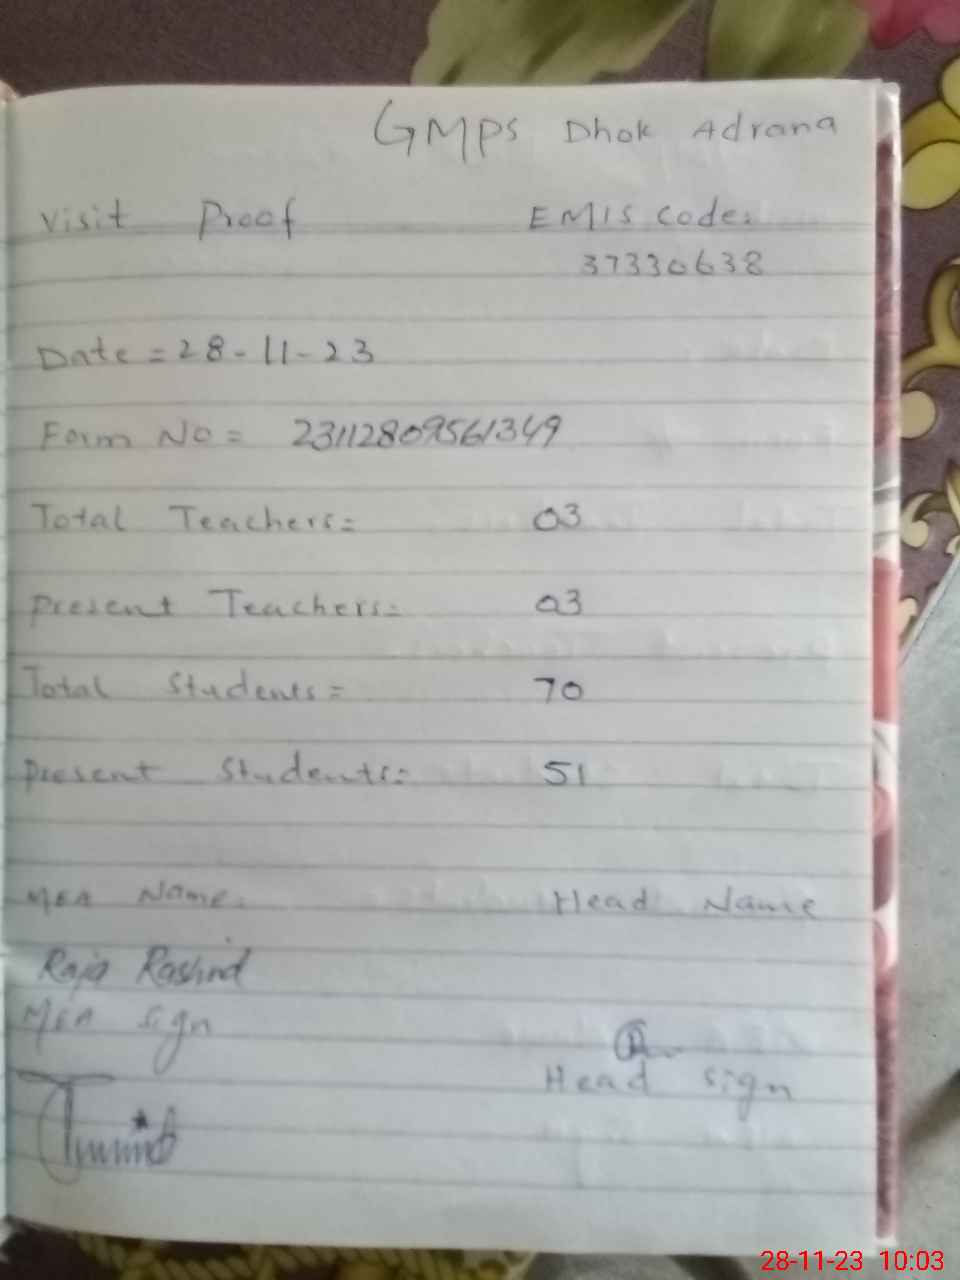 GMPS Dhok Adrana
Visit Proof
EMIS Code:
37330638
Date = 28-11-23
Form No = 23112809561349
Total Teachers = 03
Present Teachers = 03
Total Students = 70
Present Students = 51
MEA Name.
Head Name
Raja Rashid
MEA sign
Head sign
28-11-23 10:03